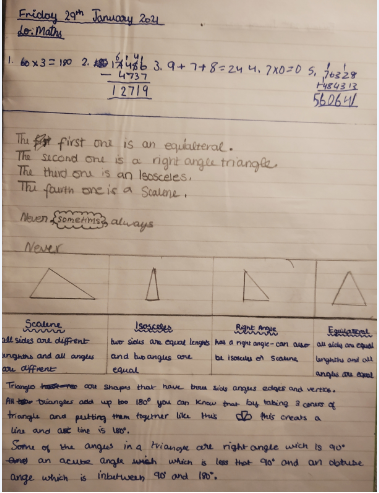 Friday 29th January 2021
Lo: Maths
1. 60 x 3 = 180 2. 17456 3. 9 + 7 + 8 = 24 4. 7x0=0 5. 76328
- 4737 +484313
12719 560641
The first one is an equialteral.
The second one is a right angle triangle
The third one is an Isosceles.
The fourth one is a Scalene.
Never sometimes always
Never
Scalene Isosceles Right Angle Equilateral
all sides are diffrent two sides are equal lenghts has a right angle - can also all sides are equal
lenghths and all angles and two angles are be isosceles or scalene lenghths and all
are diffrent equal angles are equal
Triangles are shapes that have three side angles edges and vertice.
All triangles add up too 180° you can know that by taking 3 corners of
triangle and putting them together like this this creats a
line and a line is 180°.
Some of the angles in a triangle are right angle wich is 90°
an acute angle which is less that 90° and an obtuse
angle which is inbetween 90° and 180°.